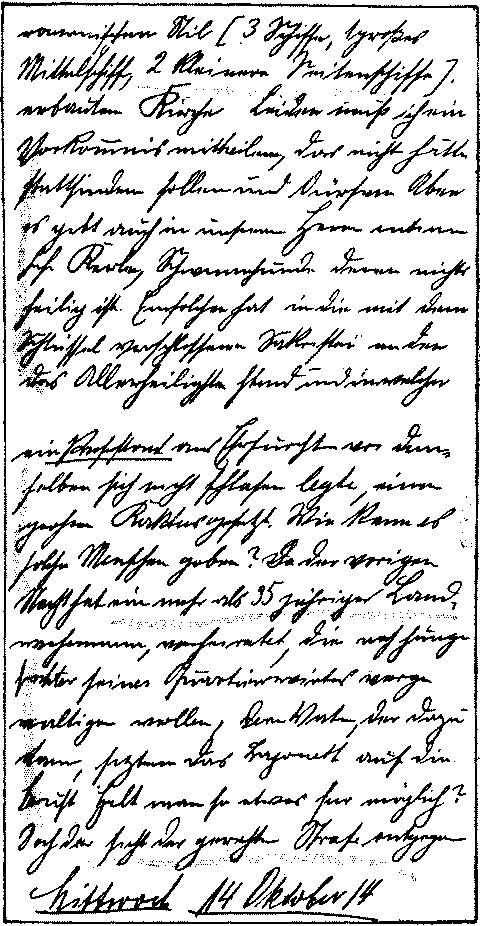 romanischen Stil [3 Schiffe, 1 großes
Mittelschiff, 2 kleinere Seitenschiffe].
erbauten Kirche Leider muß ich ein
Vorkommnis mitteilen, das nicht hätte
stattfinden sollen und dürfen Aber
es gebt auch in unserem Heere
Kerle, Schweinehunde denen nichts
heilig ist. Ein solcher hat in die mit dem
Schlüssel verschlossene Sakristei in der
das Allerheiligste stand und in welcher
ein Protestant aus Ehrfurcht vor dem-
selben sich nicht schlafen legte, einen
großen Kaktus gesetzt. Wie kann es
solche Menschen geben? In der vorigen
Nacht hat ein mehr als 35 jähriger Land-
wehrmann, verheiratet, die noch junge
Tochter seines Quartierwirtes verge
waltigen wollen, dem Vater, der dazu
kam, setzte er das Bajonett auf die
Brust Hält man so etwas für möglich?
Doch der sieht der gerechten Strafe entgegen
Mittwoch 14 Oktober 14